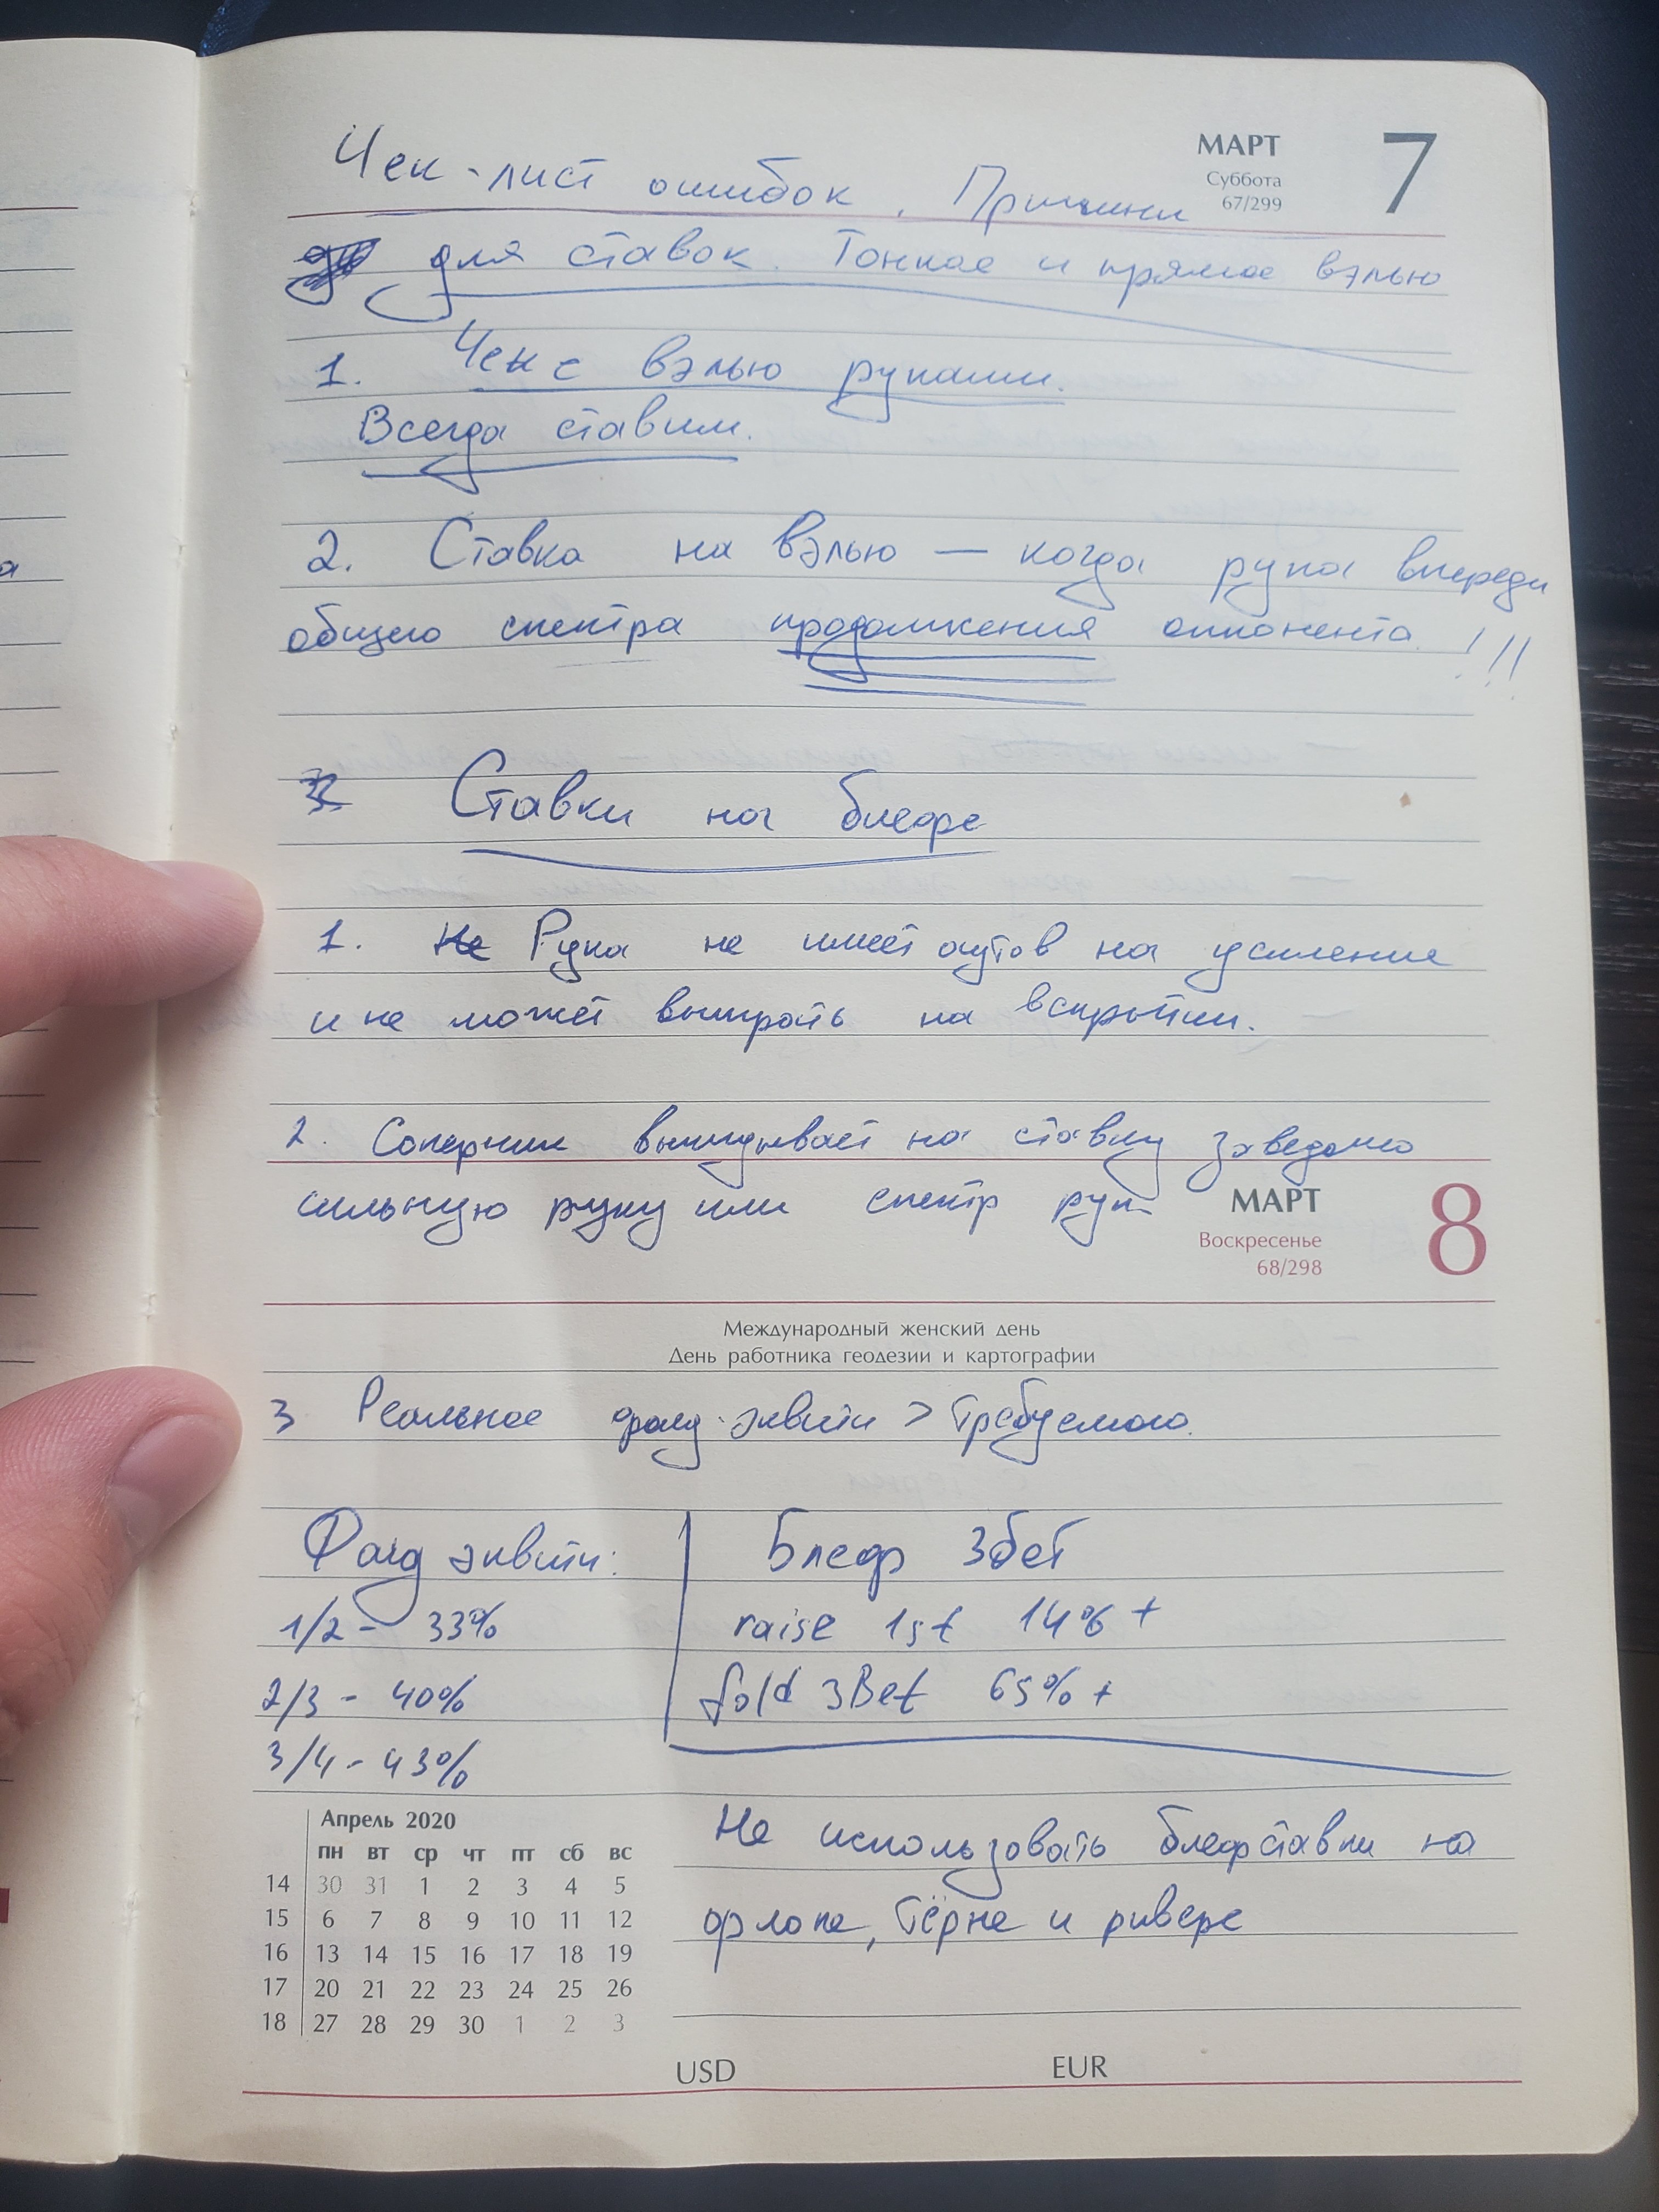 МАРТ 7
Суббота
67/299
Чек-лист ошибок. Причины
для ставок. Тонкое и прямое вэлью
1. Чек с вэлью руками.
Всегда ставим.
2. Ставка на вэлью — когда рука впереди
общего спектра продолжения оппонента!!!
Ставки на блефе
1. Не Рука не имеет аутов на усиление
и не может выиграть на вскрытии.
2. Соперник выкидывает на ставку заведомо
сильную руку или спектр рук
МАРТ 8
Воскресенье
68/298
Международный женский день
День работника геодезии и картографии
3 Реальное фолд-эквити > требуемого.
Фолд эквити:
1/2 - 33%
2/3 - 40%
3/4 - 43%
Блеф 3бет
raise 1st 14% +
fold 3Bet 65% +
Не использовать блефставки на
флопе, тёрне и ривере
Апрель 2020
пн вт ср чт пт сб вс
14 30 31 1 2 3 4 5
15 6 7 8 9 10 11 12
16 13 14 15 16 17 18 19
17 20 21 22 23 24 25 26
18 27 28 29 30 1 2 3
USD EUR